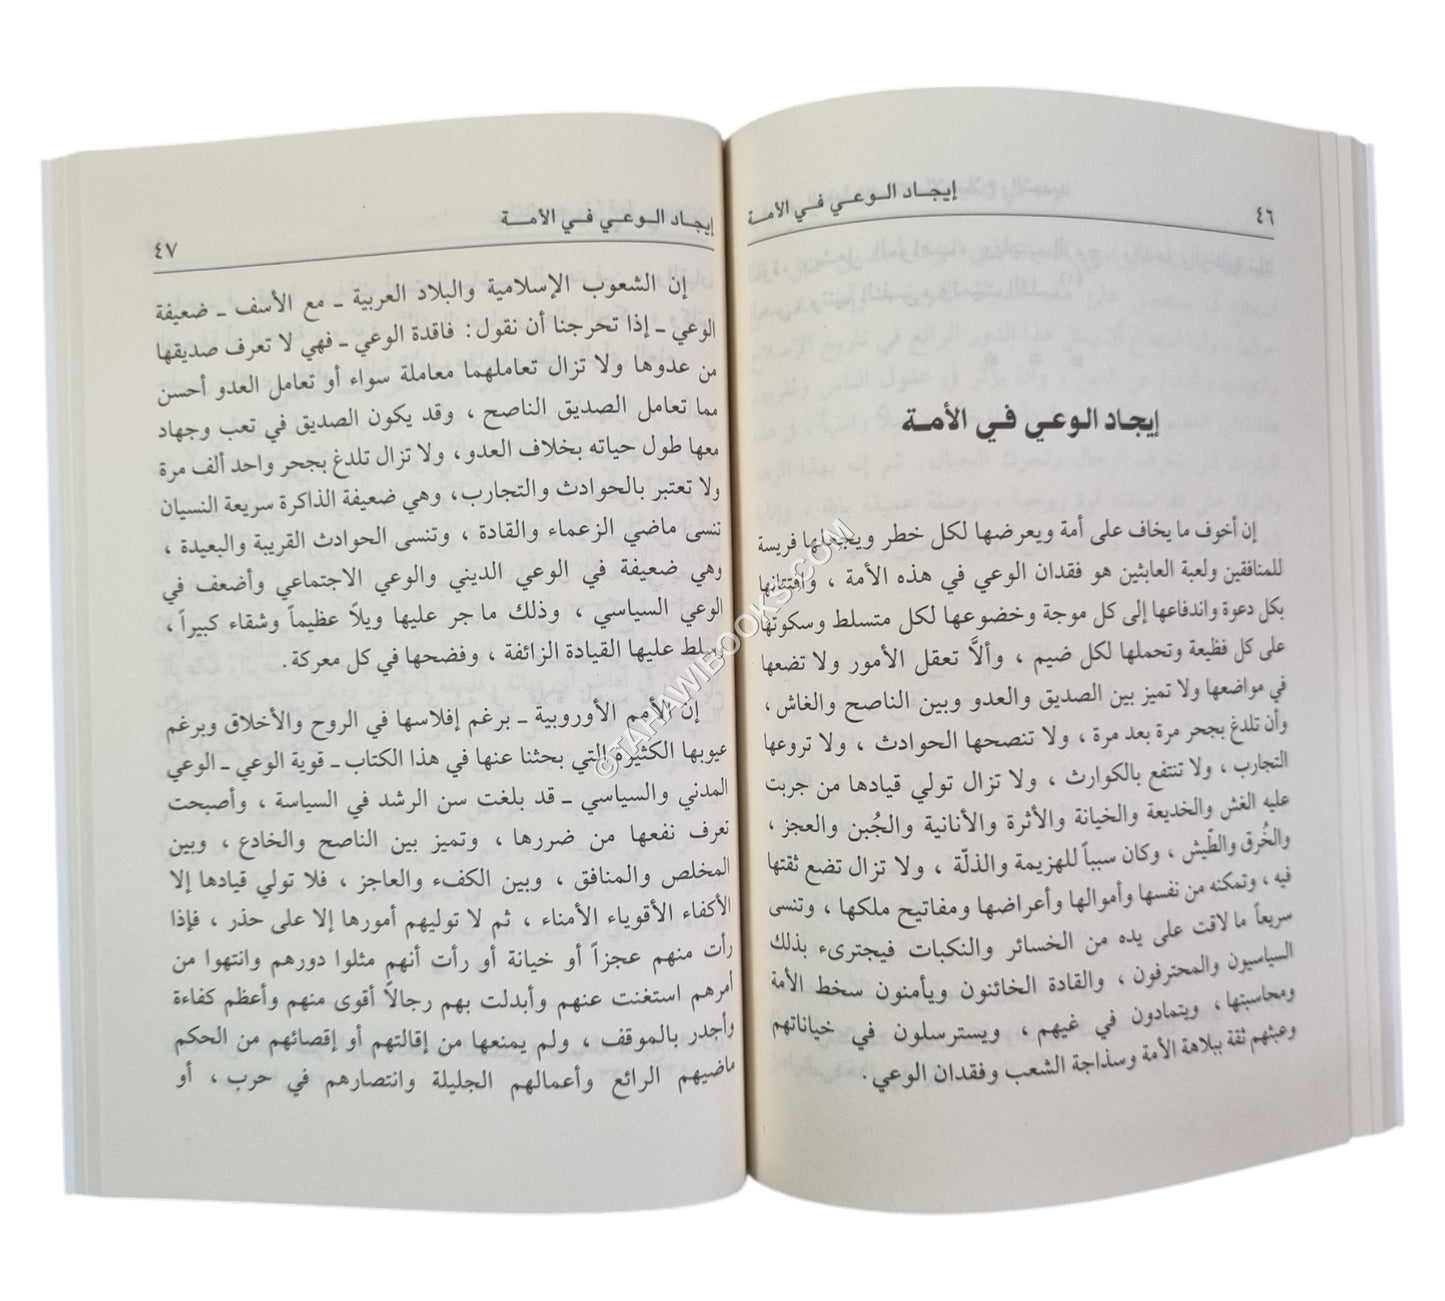 ٤٦
إيجـاد الـوعـي فـي الأمـة
إيجـاد الـوعـي فـي الأمـة
إن أخوف ما يخاف على أمة ويعرضها لكل خطر ويجعلها فريسة
للمنافقين ولعبة العابثين هو فقدان الوعي في هذه الأمة ، وافتتانها
بكل دعوة واندفاعها إلى كل موجة وخضوعها لكل متسلط وسكوتها
على كل فظيعة وتحملها لكل ضيم ، وألاَّ تعقل الأمور ولا تضعها
في مواضعها ولا تميز بين الصديق والعدو وبين الناصح والغاش ،
وأن تلدغ بجحر مرة بعد مرة ، ولا تنصحها الحوادث ، ولا تروعها
التجارب ، ولا تنتفع بالكوارث ، ولا تزال تولي قيادها من جربت
عليه الغش والخديعة والخيانة والأثرة والأنانية والجُبن والعجز ،
والخُرق والطّيش ، وكان سبباً للهزيمة والذلّة ، ولا تزال تضع ثقتها
فيه ، وتمكنه من نفسها وأموالها وأعراضها ومفاتيح ملكها ، وتنسى
سريعاً ما لاقت على يده من الخسائر والنكبات فيجترىء بذلك
السياسيون والمحترفون ، والقادة الخائنون ويأمنون سخط الأمة
ومحاسبتها ، ويتمادون في غيهم ، ويسترسلون في خياناتهم
وعبثهم ثقة ببلاهة الأمة وسذاجة الشعب وفقدان الوعي .
إيجـاد الـوعـي فـي الأمـــة
٤٧
إن الشعوب الإسلامية والبلاد العربية ـ مع الأسف ـ ضعيفة
الوعي ـ إذا تحرجنا أن نقول : فاقدة الوعي ـ فهي لا تعرف صديقها
من عدوها ولا تزال تعاملهما معاملة سواء أو تعامل العدو أحسن
مما تعامل الصديق الناصح ، وقد يكون الصديق في تعب وجهاد
معها طول حياته بخلاف العدو ، ولا تزال تلدغ بجحر واحد ألف مرة
ولا تعتبر بالحوادث والتجارب ، وهي ضعيفة الذاكرة سريعة النسيان
تنسى ماضي الزعماء والقادة ، وتنسى الحوادث القريبة والبعيدة ،
وهي ضعيفة في الوعي الديني والوعي الاجتماعي وأضعف في
الوعي السياسي ، وذلك ما جر عليها ويلاً عظيماً وشقاء كبيراً ،
وسلط عليها القيادة الزائفة ، وفضحها في كل معركة .
إن الأمم الأوروبية ـ برغم إفلاسها في الروح والأخلاق وبرغم
عيوبها الكثيرة التي بحثنا عنها في هذا الكتاب ـ قوية الوعي ـ الوعي
المدني والسياسي ـ قد بلغت سن الرشد في السياسة ، وأصبحت
تعرف نفعها من ضررها ، وتميز بين الناصح والخادع ، وبين
المخلص والمنافق ، وبين الكفء والعاجز ، فلا تولي قيادها إلا
الأكفاء الأقوياء الأمناء ، ثم لا توليهم أمورها إلا على حذر ، فإذا
رأت منهم عجزاً أو خيانة أو رأت أنهم مثلوا دورهم وانتهوا من
أمرهم استغنت عنهم وأبدلت بهم رجالاً أقوى منهم وأعظم كفاءة
وأجدر بالموقف ، ولم يمنعها من إقالتهم أو إقصائهم من الحكم
ماضيهم الرائع وأعمالهم الجليلة وانتصارهم في حرب ، أو
©TAHAWIBOOKS.COM